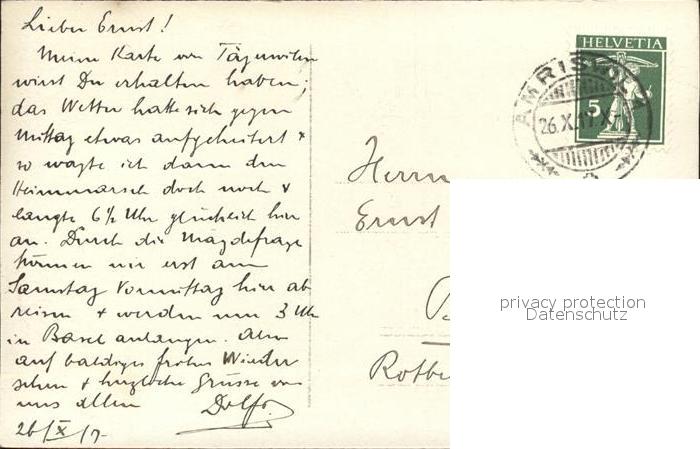 Lieber Ernst!
Meine Karte von Tägerwilen
wirst Du erhalten haben;
das Wetter hatte sich gegen
Mittag etwas aufgeheitert &
so wagte ich dann den
Heimmarsch doch noch &
langte 6½ Uhr glücklich hier
an. Durch die Mägdefrage
können wir erst am
Samstag Vormittag hier ab
reisen + werden um 3 Uhr
in Basel anlangen. Also
auf baldiges frohes Wieder
sehen & herzliche Grüsse von
uns allen Dolf.
26/X/17.
HELVETIA
5
AMRISWIL
26.X.17.X
Herrn
Ernst
privacy protection
Datenschutz